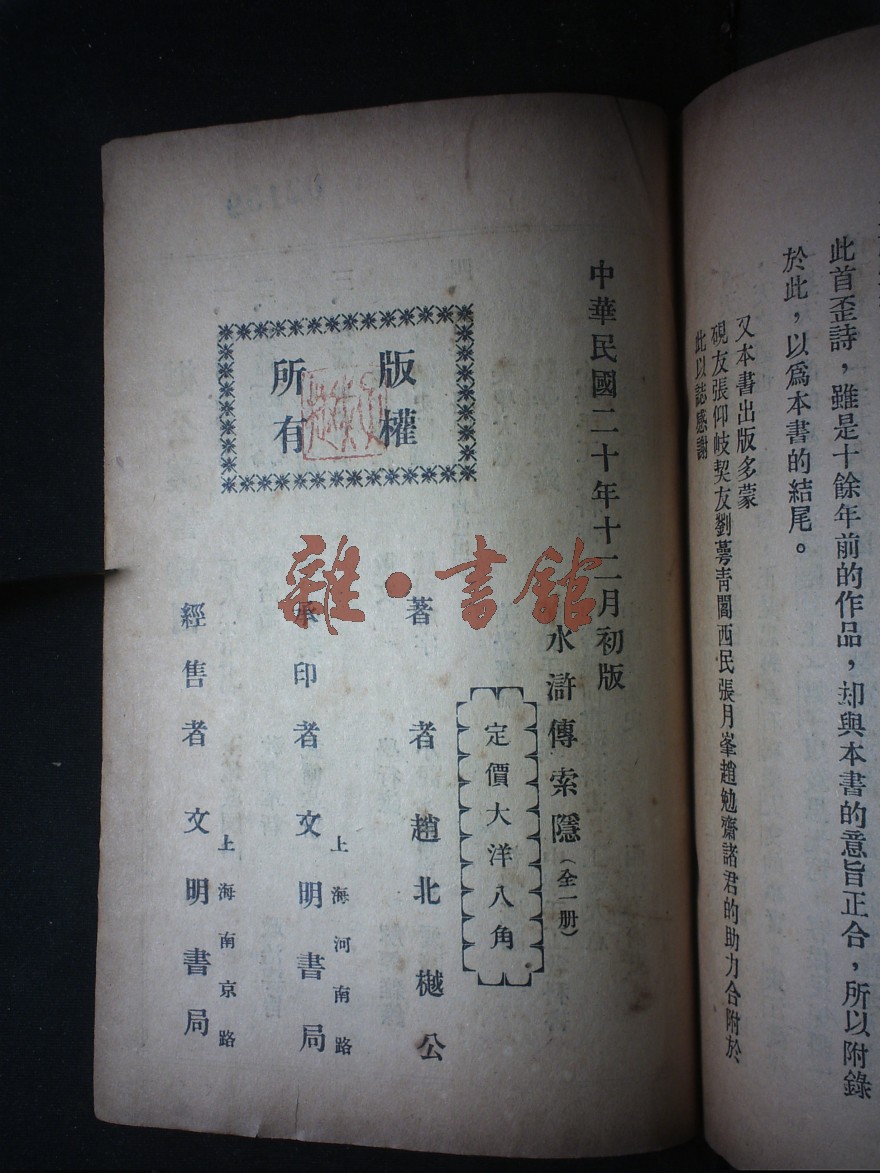 此首歪詩，雖是十餘年前的作品，却與本書的意旨正合，所以附錄
於此，以爲本書的結尾。
又本書出版多蒙
硯友張仰岐契友劉蕚青閻西民張月峯趙勉齋諸君的助力合附於
此以誌感謝
中華民國二十年十二月初版
水滸傳索隱（全一册）
定價大洋八角
版權
所有
著者趙北樾公
上海河南路
承印者文明書局
上海南京路
經售者文明書局
雜·書館